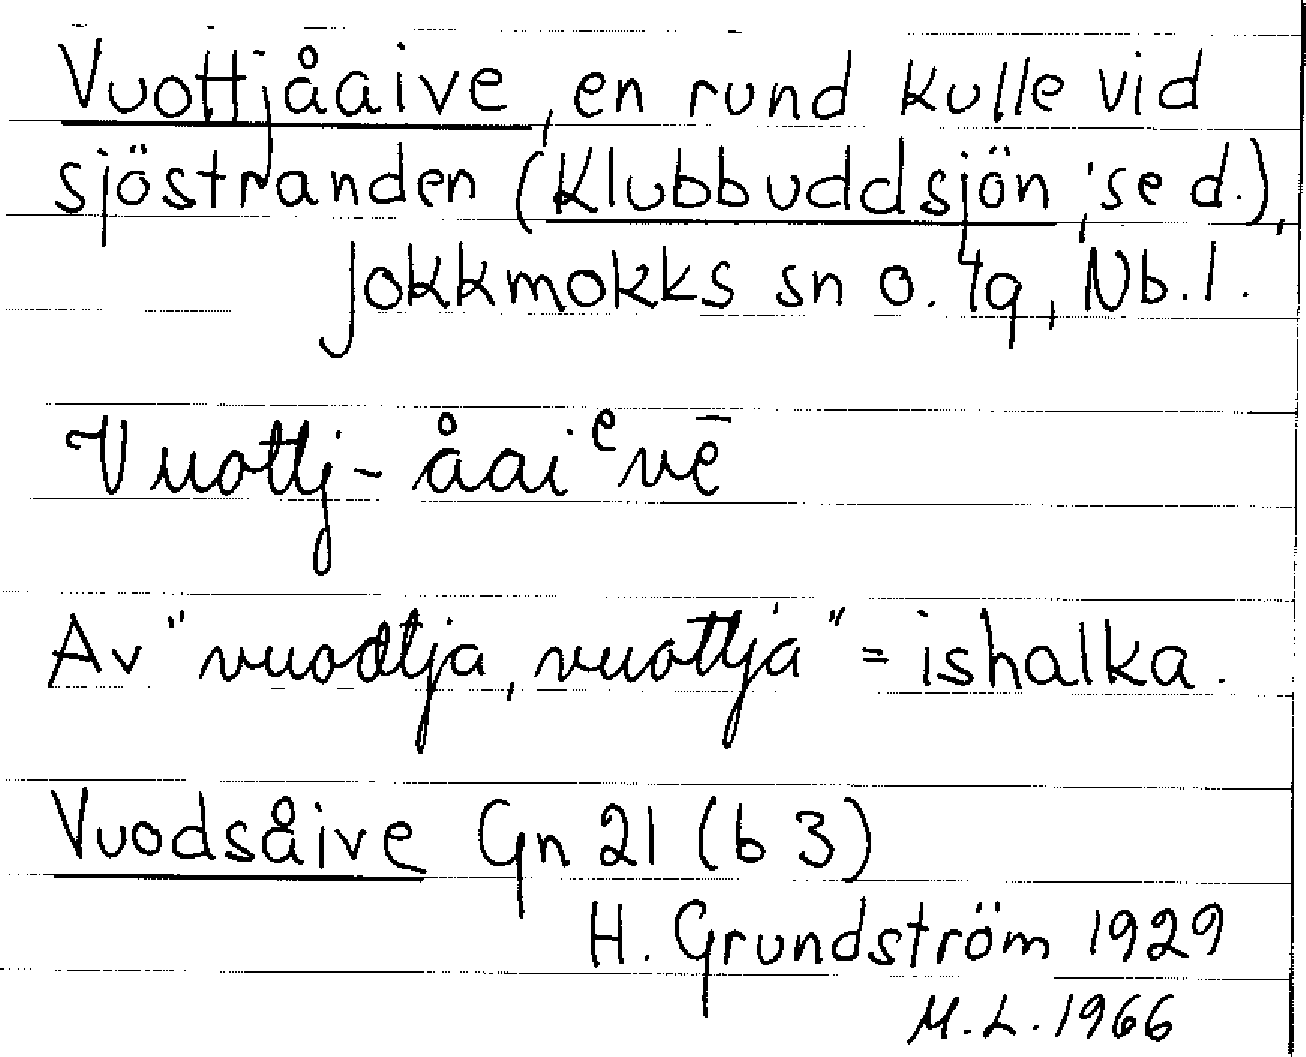 Vuottjåaive, en rund kulle vid
sjöstranden (Klubbuddsjön, se d.),
Jokkmokks sn o. tg, Nb. l.
Vuottj-åaiᵉvē
Av "vuodtja, vuottja" = ishalka.
Vuodsåive Gn 21 (b 3)
H. Grundström 1929
M.L. 1966